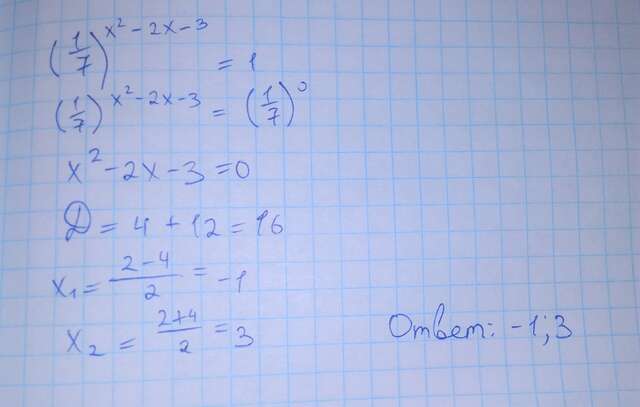 (1/7)^(x² - 2x - 3) = 1
(1/7)^(x² - 2x - 3) = (1/7)^0
x² - 2x - 3 = 0
Д = 4 + 12 = 16
x₁ = (2 - 4)/2 = -1
x₂ = (2 + 4)/2 = 3
Ответ: -1; 3